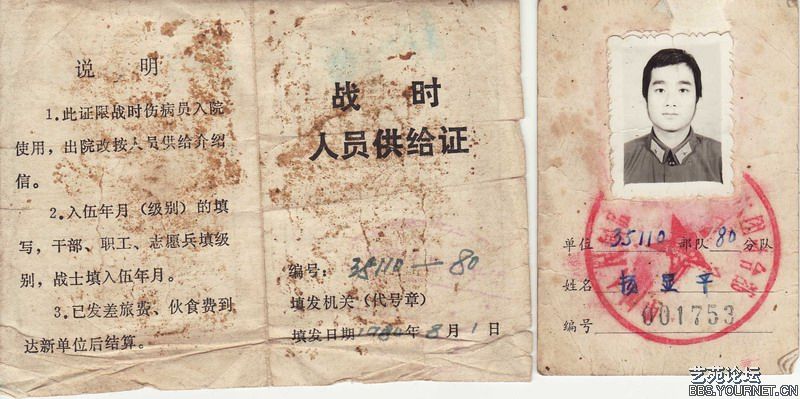 说 明
1.此证限战时伤病员入院
使用，出院改按人员供给介绍
信。
2.入伍年月（级别）的填
写，干部、职工、志愿兵填级
别，战士填入伍年月。
3.已发差旅费、伙食费到
达新单位后结算。
战 时
人员供给证
编号：35110—80
填发机关（代号章）
填发日期1984年8月1日
单位35110部队80分队
姓名杨亚平
编号001753
艺苑论坛
BBS.YOURNET.CN